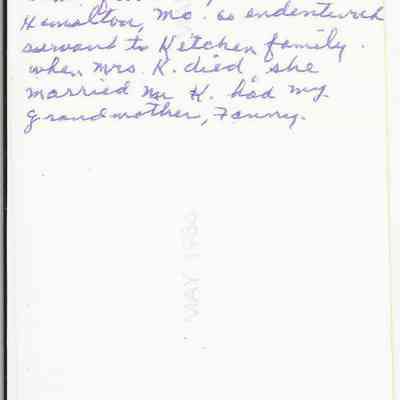 Hamilton, Mo. as endenturch
servant to Ketchen family.
when Mrs. K. died, she
married Mr K. had my
grandmother, Fanny.
MAY 1984